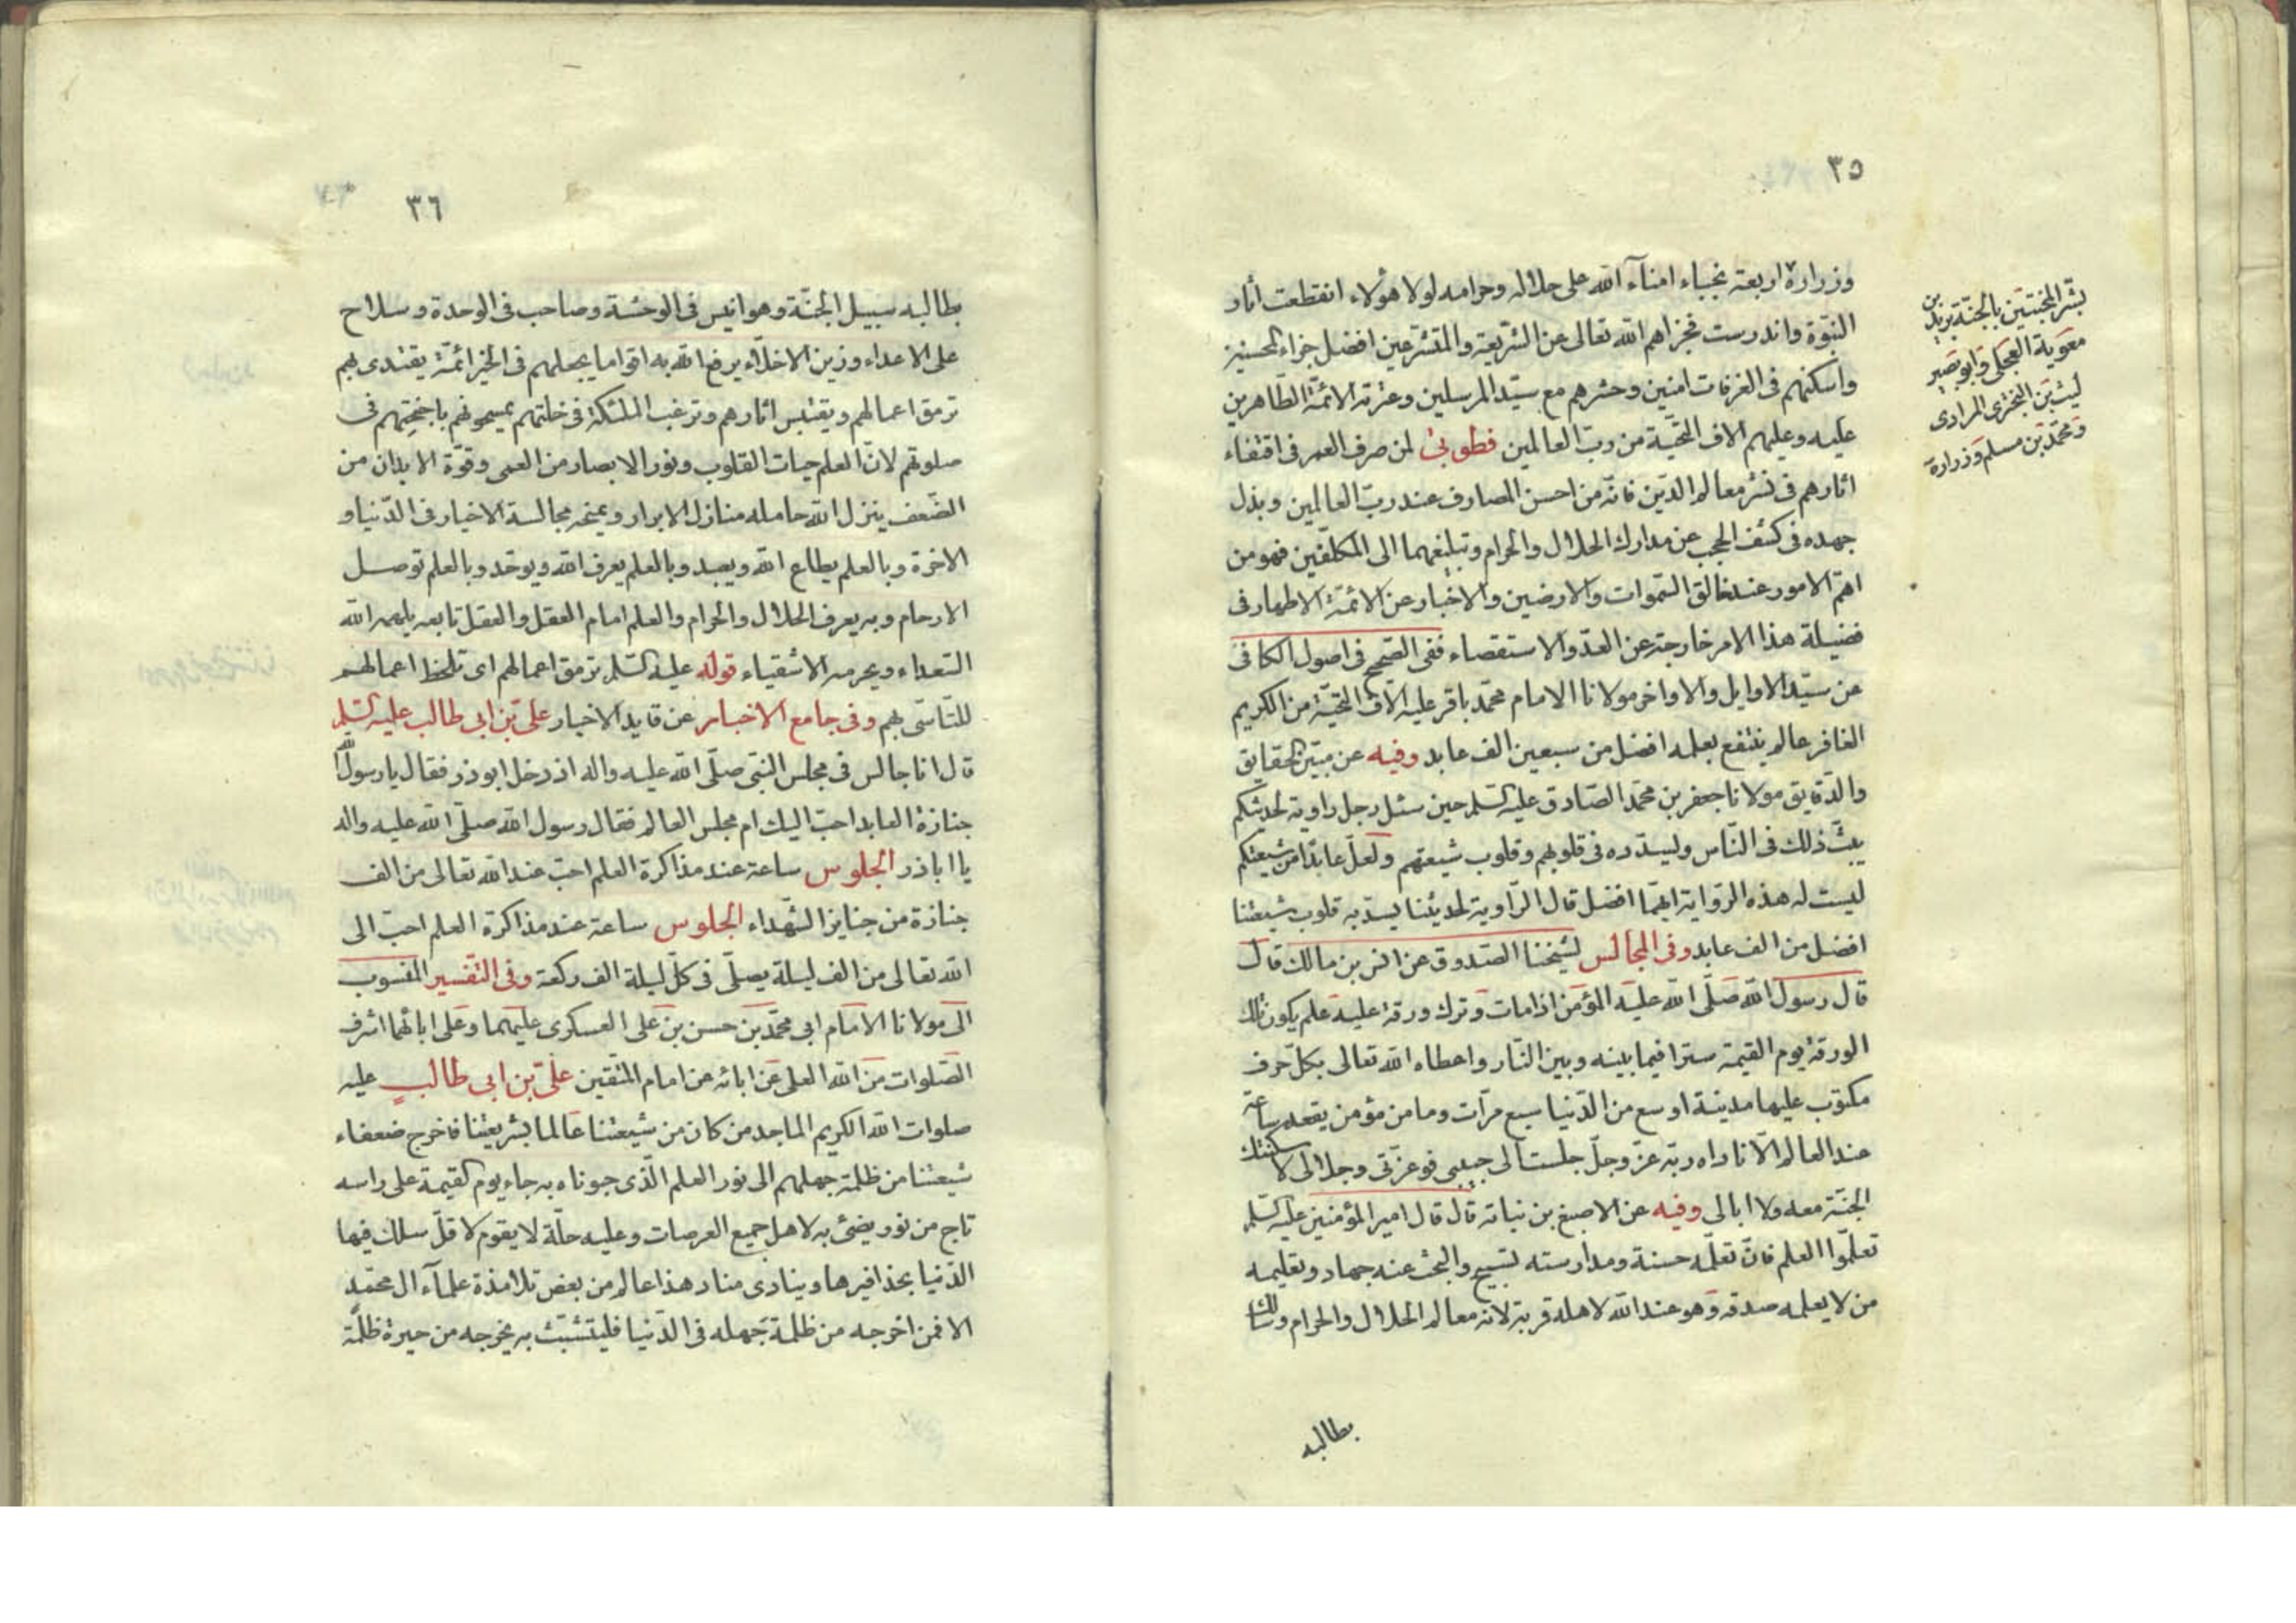 ٣٥
بشّر المخبتين بالجنّة بريد بن
معوية العجلى وابو بصير
ليث بن البخترى المرادى
ومحمّد بن مسلم وزرارة
وزرارة اربعة نجباء امناء الله على حلاله وحرامه لولا هولاء انقطعت اثار
النبوّة واندرست فجزاهم الله تعالى عن الشريعة والمتشرعين افضل جزاء المحسنين
واسكنهم فى الغرفات امنين وحشرهم مع سيّد المرسلين وعترته الائمّة الطاهرين
عليه وعليهم الاف التحيّة من ربّ العالمين فطوبى لمن صرف العمر فى اقتفاء
اثارهم فى نشر معالم الدّين فانّه من احسن المصارف عند ربّ العالمين وبذل
جهده فى كشف الحجب عن مدارك الحلال والحرام وتبليغهما الى المكلّفين فهو من
اهمّ الامور عند خالق السّموات والارضين والاخبار عن الائمّة الاطهار فى
فضيلة هذا الامر خارجة عن العدّ والاستقصاء ففى الصّحيح فى اصول الكافى
عن سيّد الاوايل والاواخر مولانا الامام محمّد باقر عليه الاف التحيّة من الكريم
الغافر عالم ينتفع بعلمه افضل من سبعين الف عابد وفيه عن مبيّن الحقايق
والدّقايق مولانا جعفر بن محمّد الصّادق عليه السّلم حين سئل رجل راوية لحديثكم
يبثّ ذلك فى النّاس وليسدّده فى قلوبهم وقلوب شيعتهم ولعلّ عابدا من شيعتكم
ليست له هذه الرّواية ايّهما افضل قال الرّاوية لحديثنا يسدّ به قلوب شيعتنا
افضل من الف عابد وفى المجالس لشيخنا الصّدوق عن انس بن مالك قال
قال رسول الله صلّى الله عليه المؤمن اذا مات وترك ورقة عليه علم يكون تلك
الورقة يوم القيمة سترا فيما بينه وبين النّار واعطاه الله تعالى بكلّ حرف
مكتوب عليها مدينة اوسع من الدّنيا سبع مرّات وما من مؤمن يقعد ساعة
عند العالم الّا ناداه ربّه عزّ وجلّ جلست الى حبيبى فوعزّتى وجلالى لاسكنتك
الجنّة معه ولا ابالى وفيه عن الاصبغ بن نباته قال قال امير المؤمنين عليه السّلم
تعلّموا العلم فانّ تعلّمه حسنة ومدارسته تسبيح والبحث عنه جهاد وتعليمه
من لا يعلمه صدقه وهو عند الله لاهله قربة لانه معالم الحلال والحرام وسالك
بطالبه
٣٦
بطالبه سبيل الجنّة وهو انيس فى الوحشة وصاحب فى الوحدة وسلاح
على الاعداء وزين الاخلّاء يرفع الله به اقواما يجعلهم فى الخير ائمّة يقتدى بهم
ترمق اعمالهم ويقتبس اثارهم وترغب الملئكة فى خلّتهم يمسحونهم باجنحتهم فى
صلوتهم لانّ العلم حيات القلوب ونور الابصار من العمى وقوّة الابدان من
الضّعف ينزل الله حامله منازل الابرار ويمنحه مجالسة الاخيار فى الدّنيا و
الاخرة وبالعلم يطاع الله ويعبد وبالعلم يعرف الله ويوحّد وبالعلم توصل
الارحام وبه يعرف الحلال والحرام والعلم امام العقل والعقل تابعه يلهمه الله
السّعداء ويحرمه الاشقياء قوله عليه السّلم ترمق اعمالهم اى تلحظ اعمالهم
للتاسّى بهم وفى جامع الاخبار عن قايد الاخيار علىّ بن ابى طالب عليه السّلم
قال انا جالس فى مجلس النبّى صلّى الله عليه واله اذ دخل ابوذر فقال يا رسول الله
جنازة العابد احبّ اليك ام مجلس العالم فقال رسول الله صلّى الله عليه واله
يا اباذر الجلوس ساعة عند مذاكرة العلم احبّ عند الله تعالى من الف
جنازة من جنايز الشّهداء الجلوس ساعة عند مذاكرة العلم احبّ الى
الله تعالى من الف ليلة يصلّى فى كلّ ليلة الف ركعة وفى التّفسير المنسوب
الى مولانا الامام ابى محمّد بن حسن بن على العسكرى عليهما وعلى ابائهما اشرف
الصّلوات من الله العلى عن ابائه عن امام المتّقين علىّ بن ابى طالب عليه
صلوات الله الكريم الماجد من كان من شيعتنا عالما بشريعتنا فاخرج ضعفاء
شيعتنا من ظلمة جهلهم الى نور العلم الّذى حبوناه به جاء يوم القيمة على راسه
تاج من نور يضئ به لاهل جميع العرصات وعليه حلّة لا يقوم لاقلّ سلك فيها
الدّنيا بحذافيرها وينادى مناد هذا عالم من بعض تلامذة علماء ال محمّد
الا فمن اخرجه من ظلمة جهله فى الدّنيا فليتشبّث به يخرجه من حيرة ظلمة